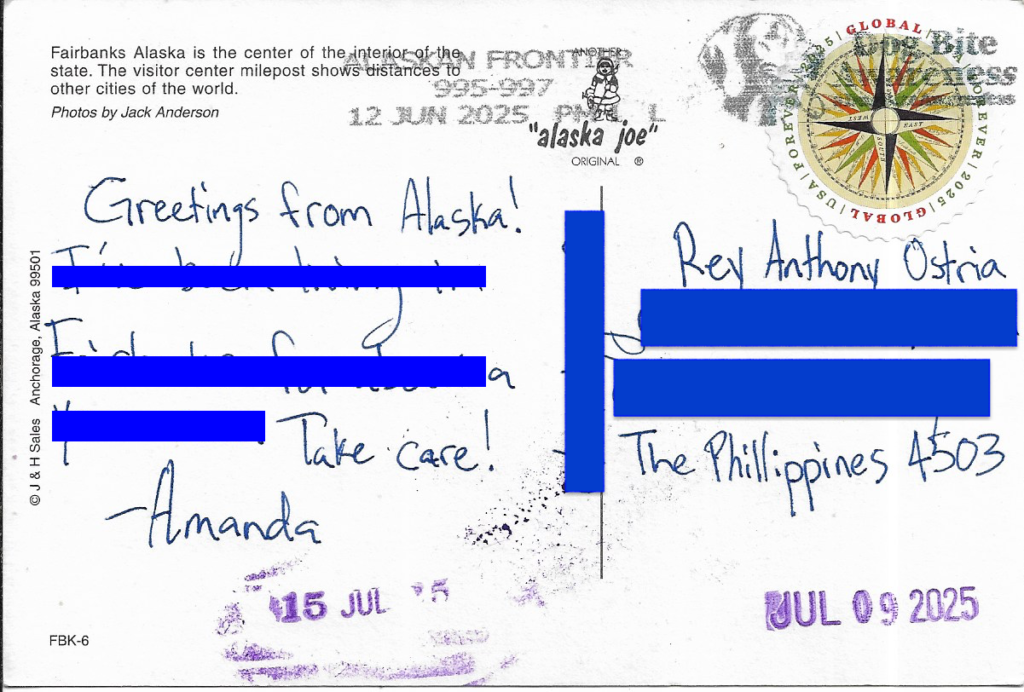 Fairbanks Alaska is the center of the interior of the
state. The visitor center milepost shows distances to
other cities of the world.
Photos by Jack Anderson
ALASKAN FRONTIER
995-997
12 JUN 2025 PM L
ANOTHER
"alaska joe"
ORIGINAL ®
Dog Bite
Awareness
GLOBAL | USA | FOREVER | 2025 | GLOBAL | USA | FOREVER | 2025
EAST
SOUTH
WEST
Greetings from Alaska!
a
Take care!
-Amanda
Rev Anthony Ostria
The Phillippines 4503
© J & H Sales Anchorage, Alaska 99501
15 JUL 5
JUL 09 2025
FBK-6